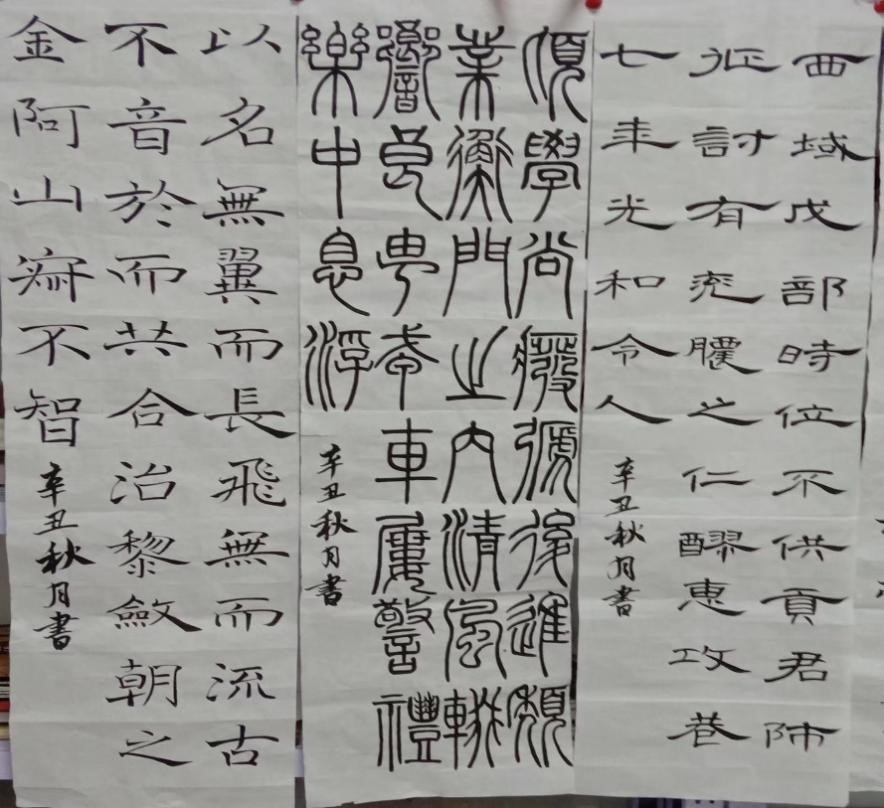 西域戊部時位不供貢君師
征討有兖膿之仁醪惠攻巷
七年光和令人
辛丑秋月書
須學尚癈號後進頽
業衡門止內清風
響良甹孝車屢警禮
樂中息浮
辛丑秋月書
以名無翼而長飛無而流古
不音於而共合治黎斂朝之
金阿山不智
辛丑秋月書